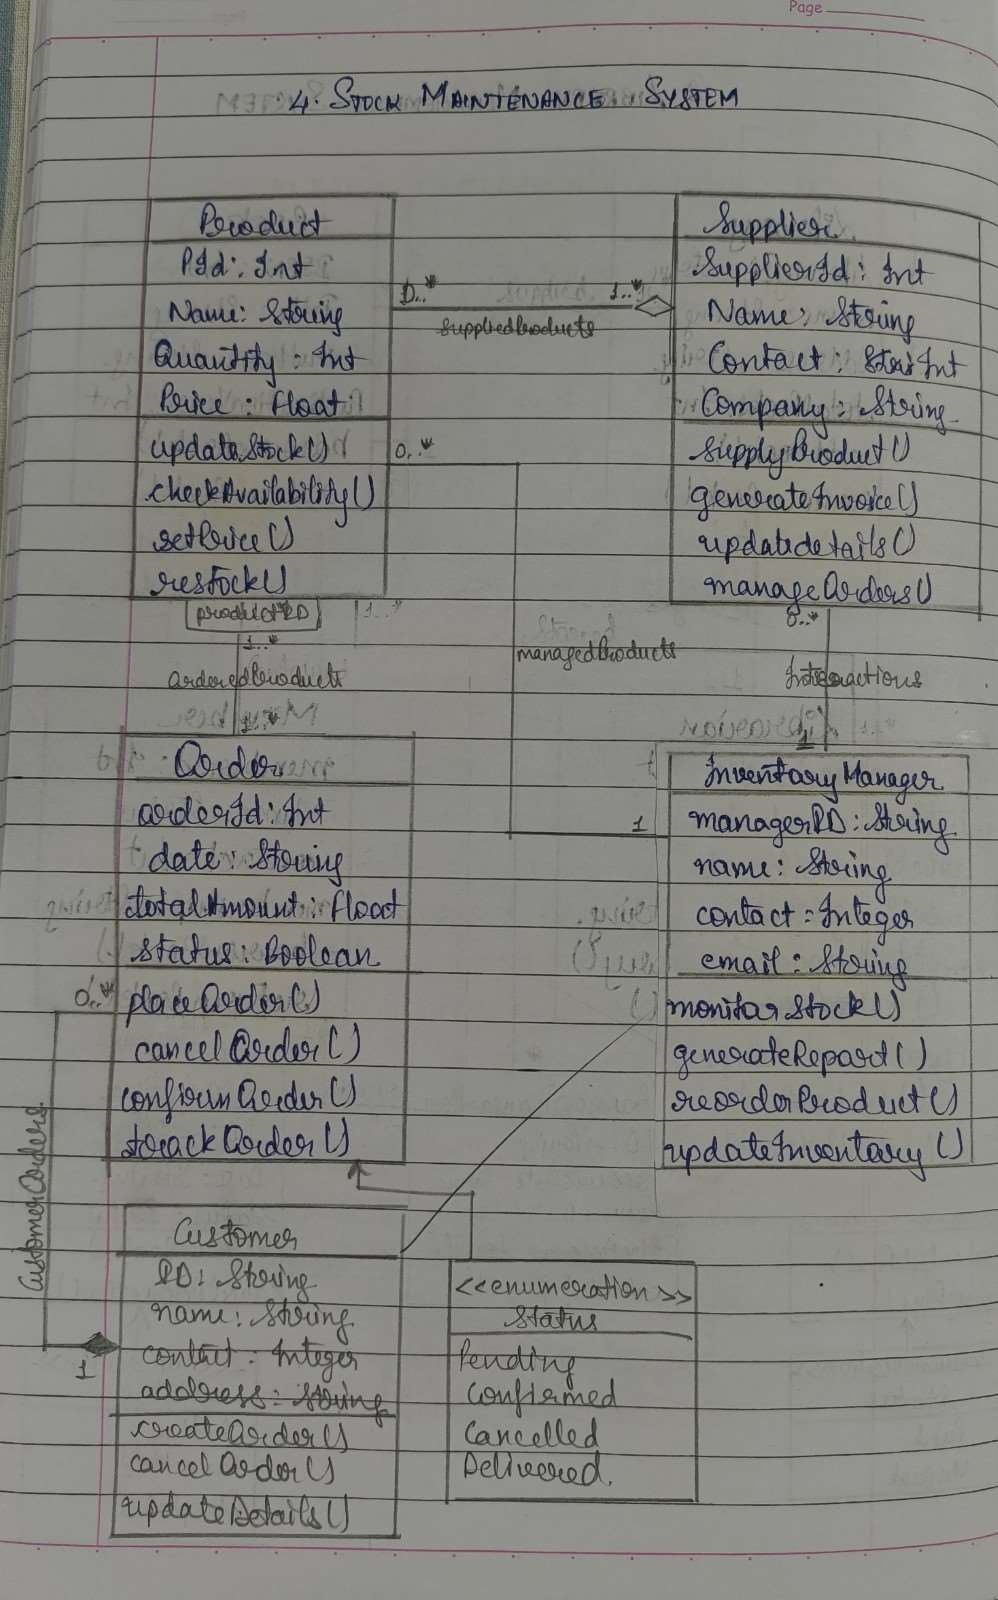 Page
4. STOCK MAINTENANCE SYSTEM
Product
PId: Int
Name: String
Quantity: Int
Price: Float
updateStock()
checkAvailability()
setPrice()
restock()
productID
0..*
1..*
suppliedProducts
Supplier
SupplierId: Int
Name: String
Contact: Int
Company: String
supplyProduct()
generateInvoice()
updatedetails()
manageOrders()
0..*
1..*
1..*
orderedProducts
1..*
managedProducts
0..*
Interactions
1
Order
orderId: Int
date: String
totalAmount: Float
status: Boolean
placeOrder()
cancelOrder()
confirmOrder()
trackOrder()
1
InventoryManager
managerID: String
name: String
contact: Integer
email: String
monitorStock()
generateReport()
reorderProduct()
updateInventory()
0..*
CustomerOrders
1
Customer
ID: String
name: String
contact: Integer
address: String
createOrder()
cancelOrder()
updateDetails()
<<enumeration>>
Status
Pending
Confirmed
Cancelled
Delivered.